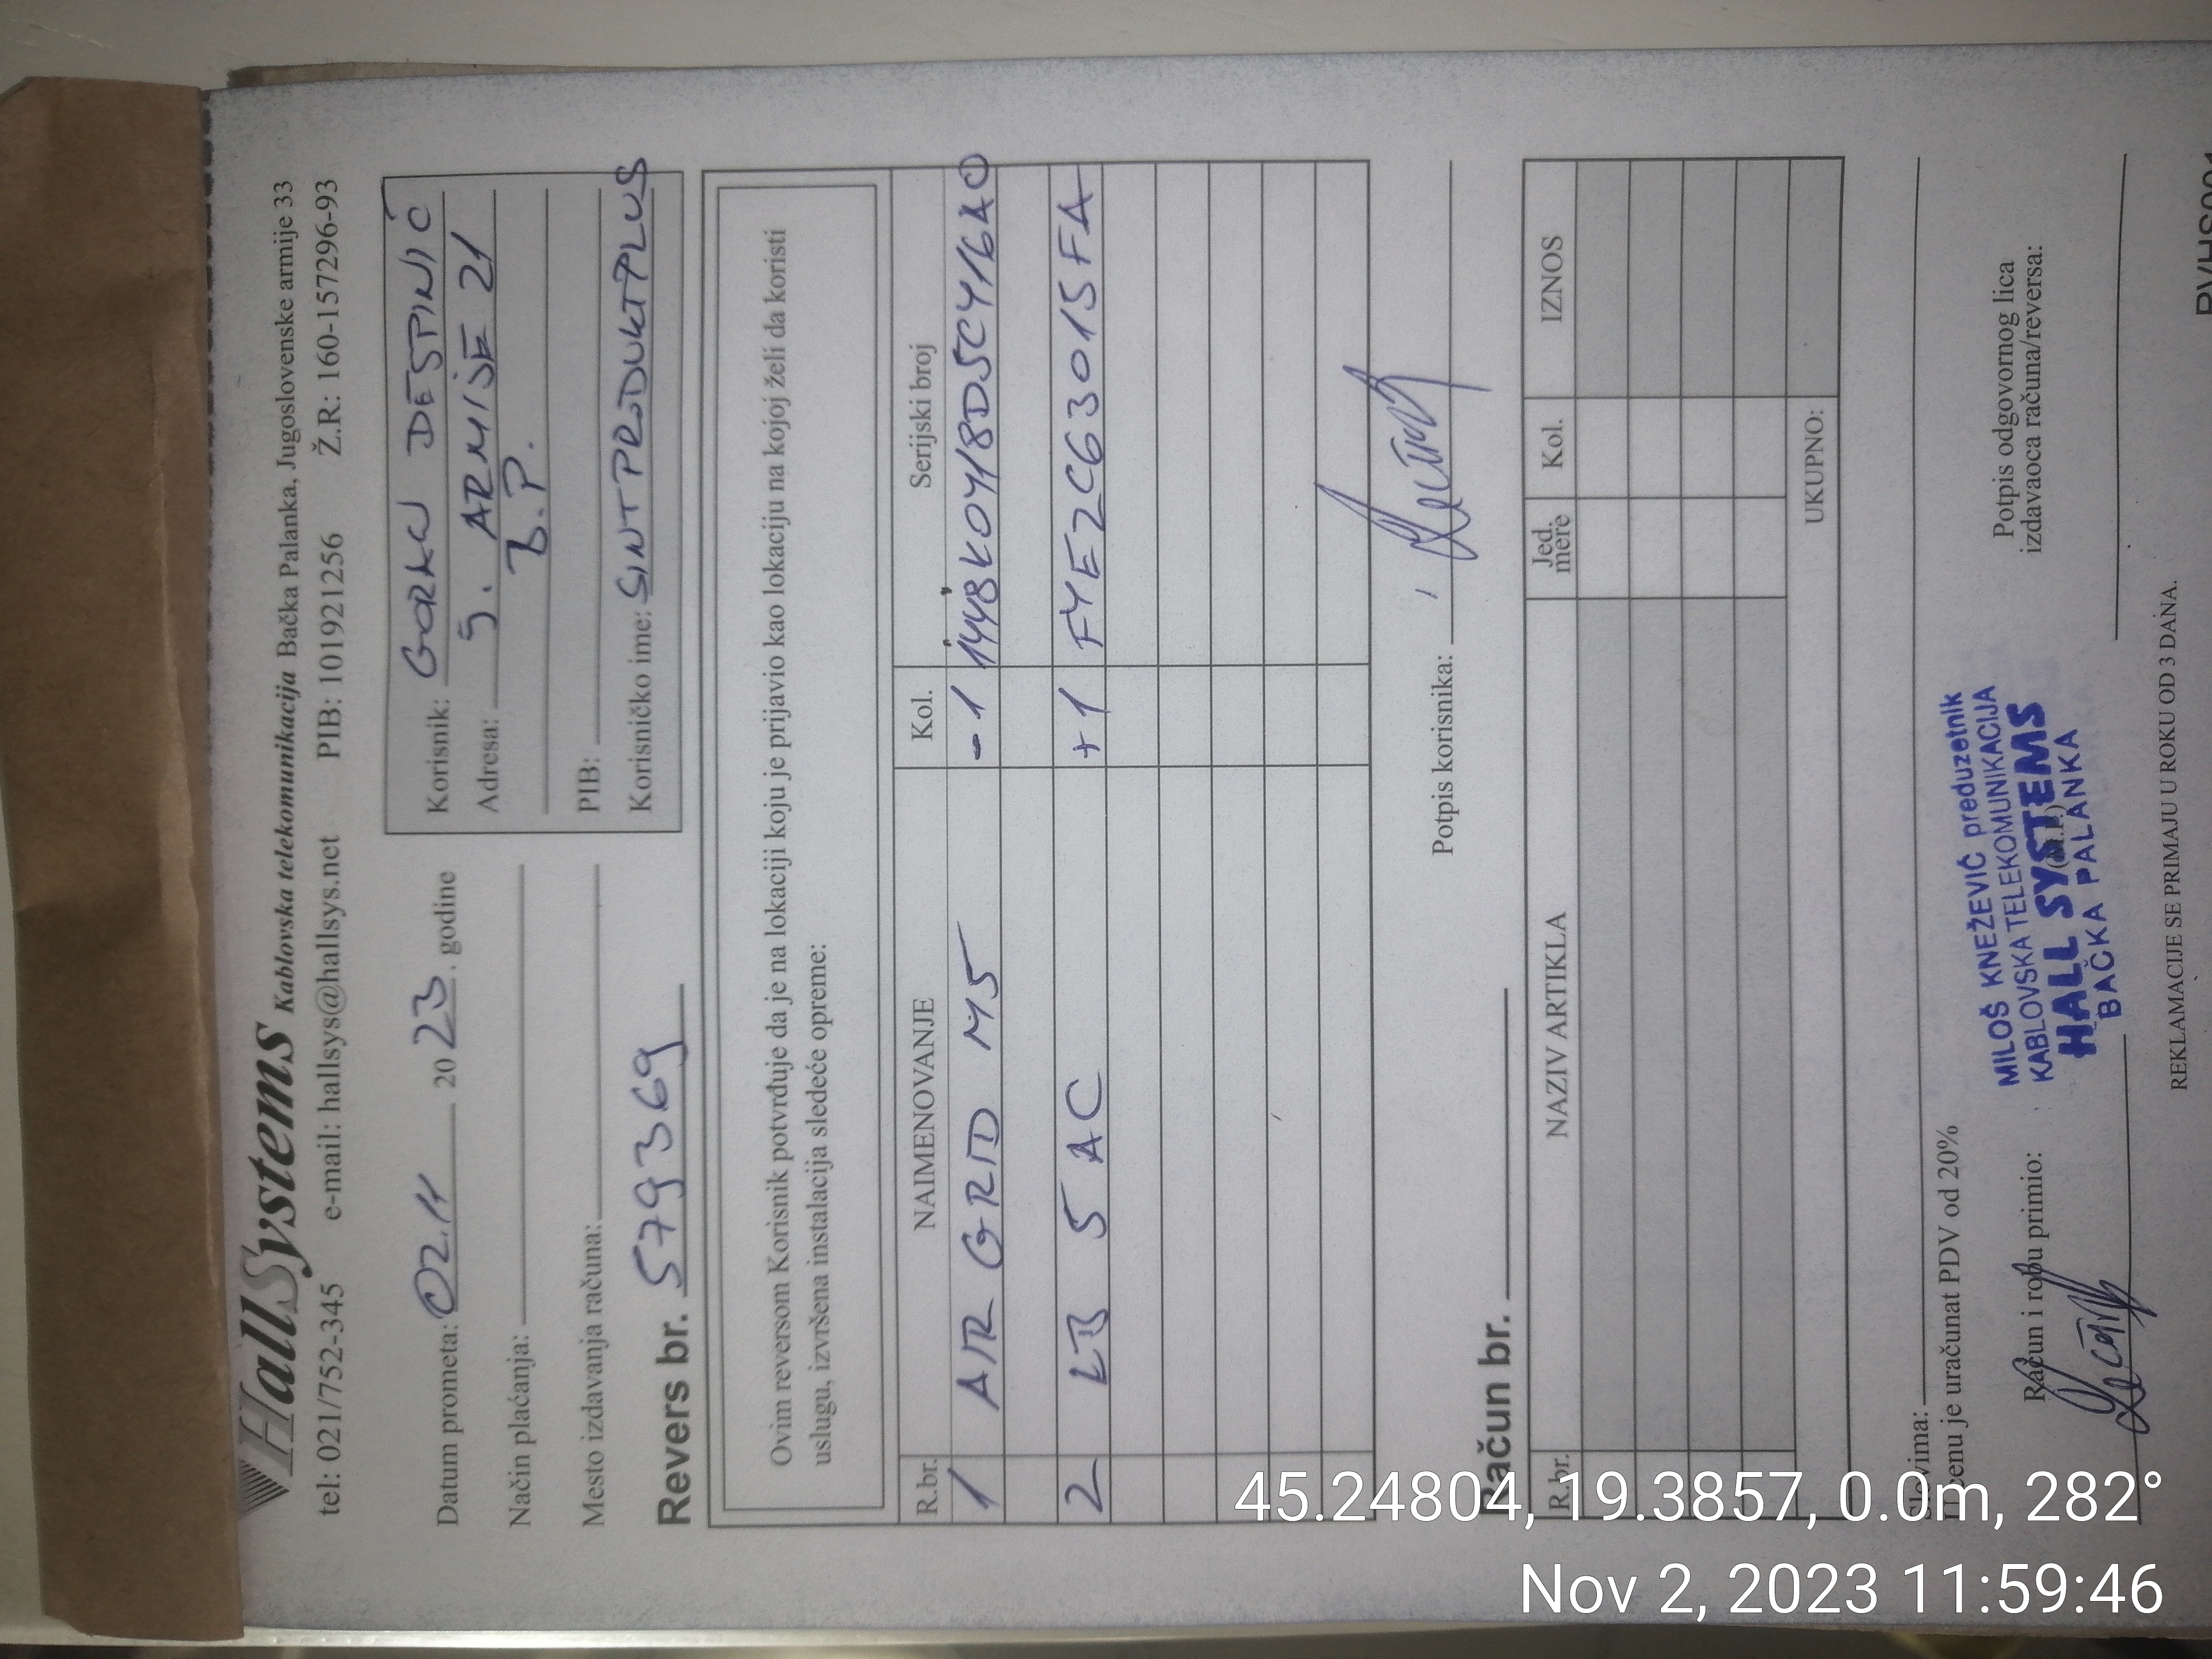 HallSystems Kablovska telekomunikacija Bačka Palanka, Jugoslovenske armije 33
tel: 021/752-345 e-mail: hallsys@hallsys.net PIB: 101921256 Ž.R: 160-157296-93
Datum prometa: 02.11 2023. godine
Način plaćanja:
Mesto izdavanja računa:
Revers br. 579369
Korisnik: DESPINIĆ
Adresa: J. ARMIJE 21
B.P.
PIB:
Korisničko ime: SINTPRODUKTPLUS
Ovim reversom Korisnik potvrđuje da je na lokaciji koju je prijavio kao lokaciju na kojoj želi da koristi
uslugu, izvršena instalacija sledeće opreme:
R.br. NAIMENOVANJE Kol. Serijski broj
1 AIR GRID M5 -1 1448K0418D5CY16A0
2 LB 5 AC +1 F4E2C63015FA
Potpis korisnika:
Račun br.
R.br. NAZIV ARTIKLA Jed. mere Kol. IZNOS
UKUPNO:
Slovima:
U cenu je uračunat PDV od 20%
Račun i robu primio:
(M.P.)
MILOŠ KNEŽEVIĆ preduzetnik
KABLOVSKA TELEKOMUNIKACIJA
HALL SYSTEMS
BAČKA PALANKA
Potpis odgovornog lica
izdavaoca računa/reversa:
REKLAMACIJE SE PRIMAJU U ROKU OD 3 DANA.
45.24804, 19.3857, 0.0m, 282°
Nov 2, 2023 11:59:46